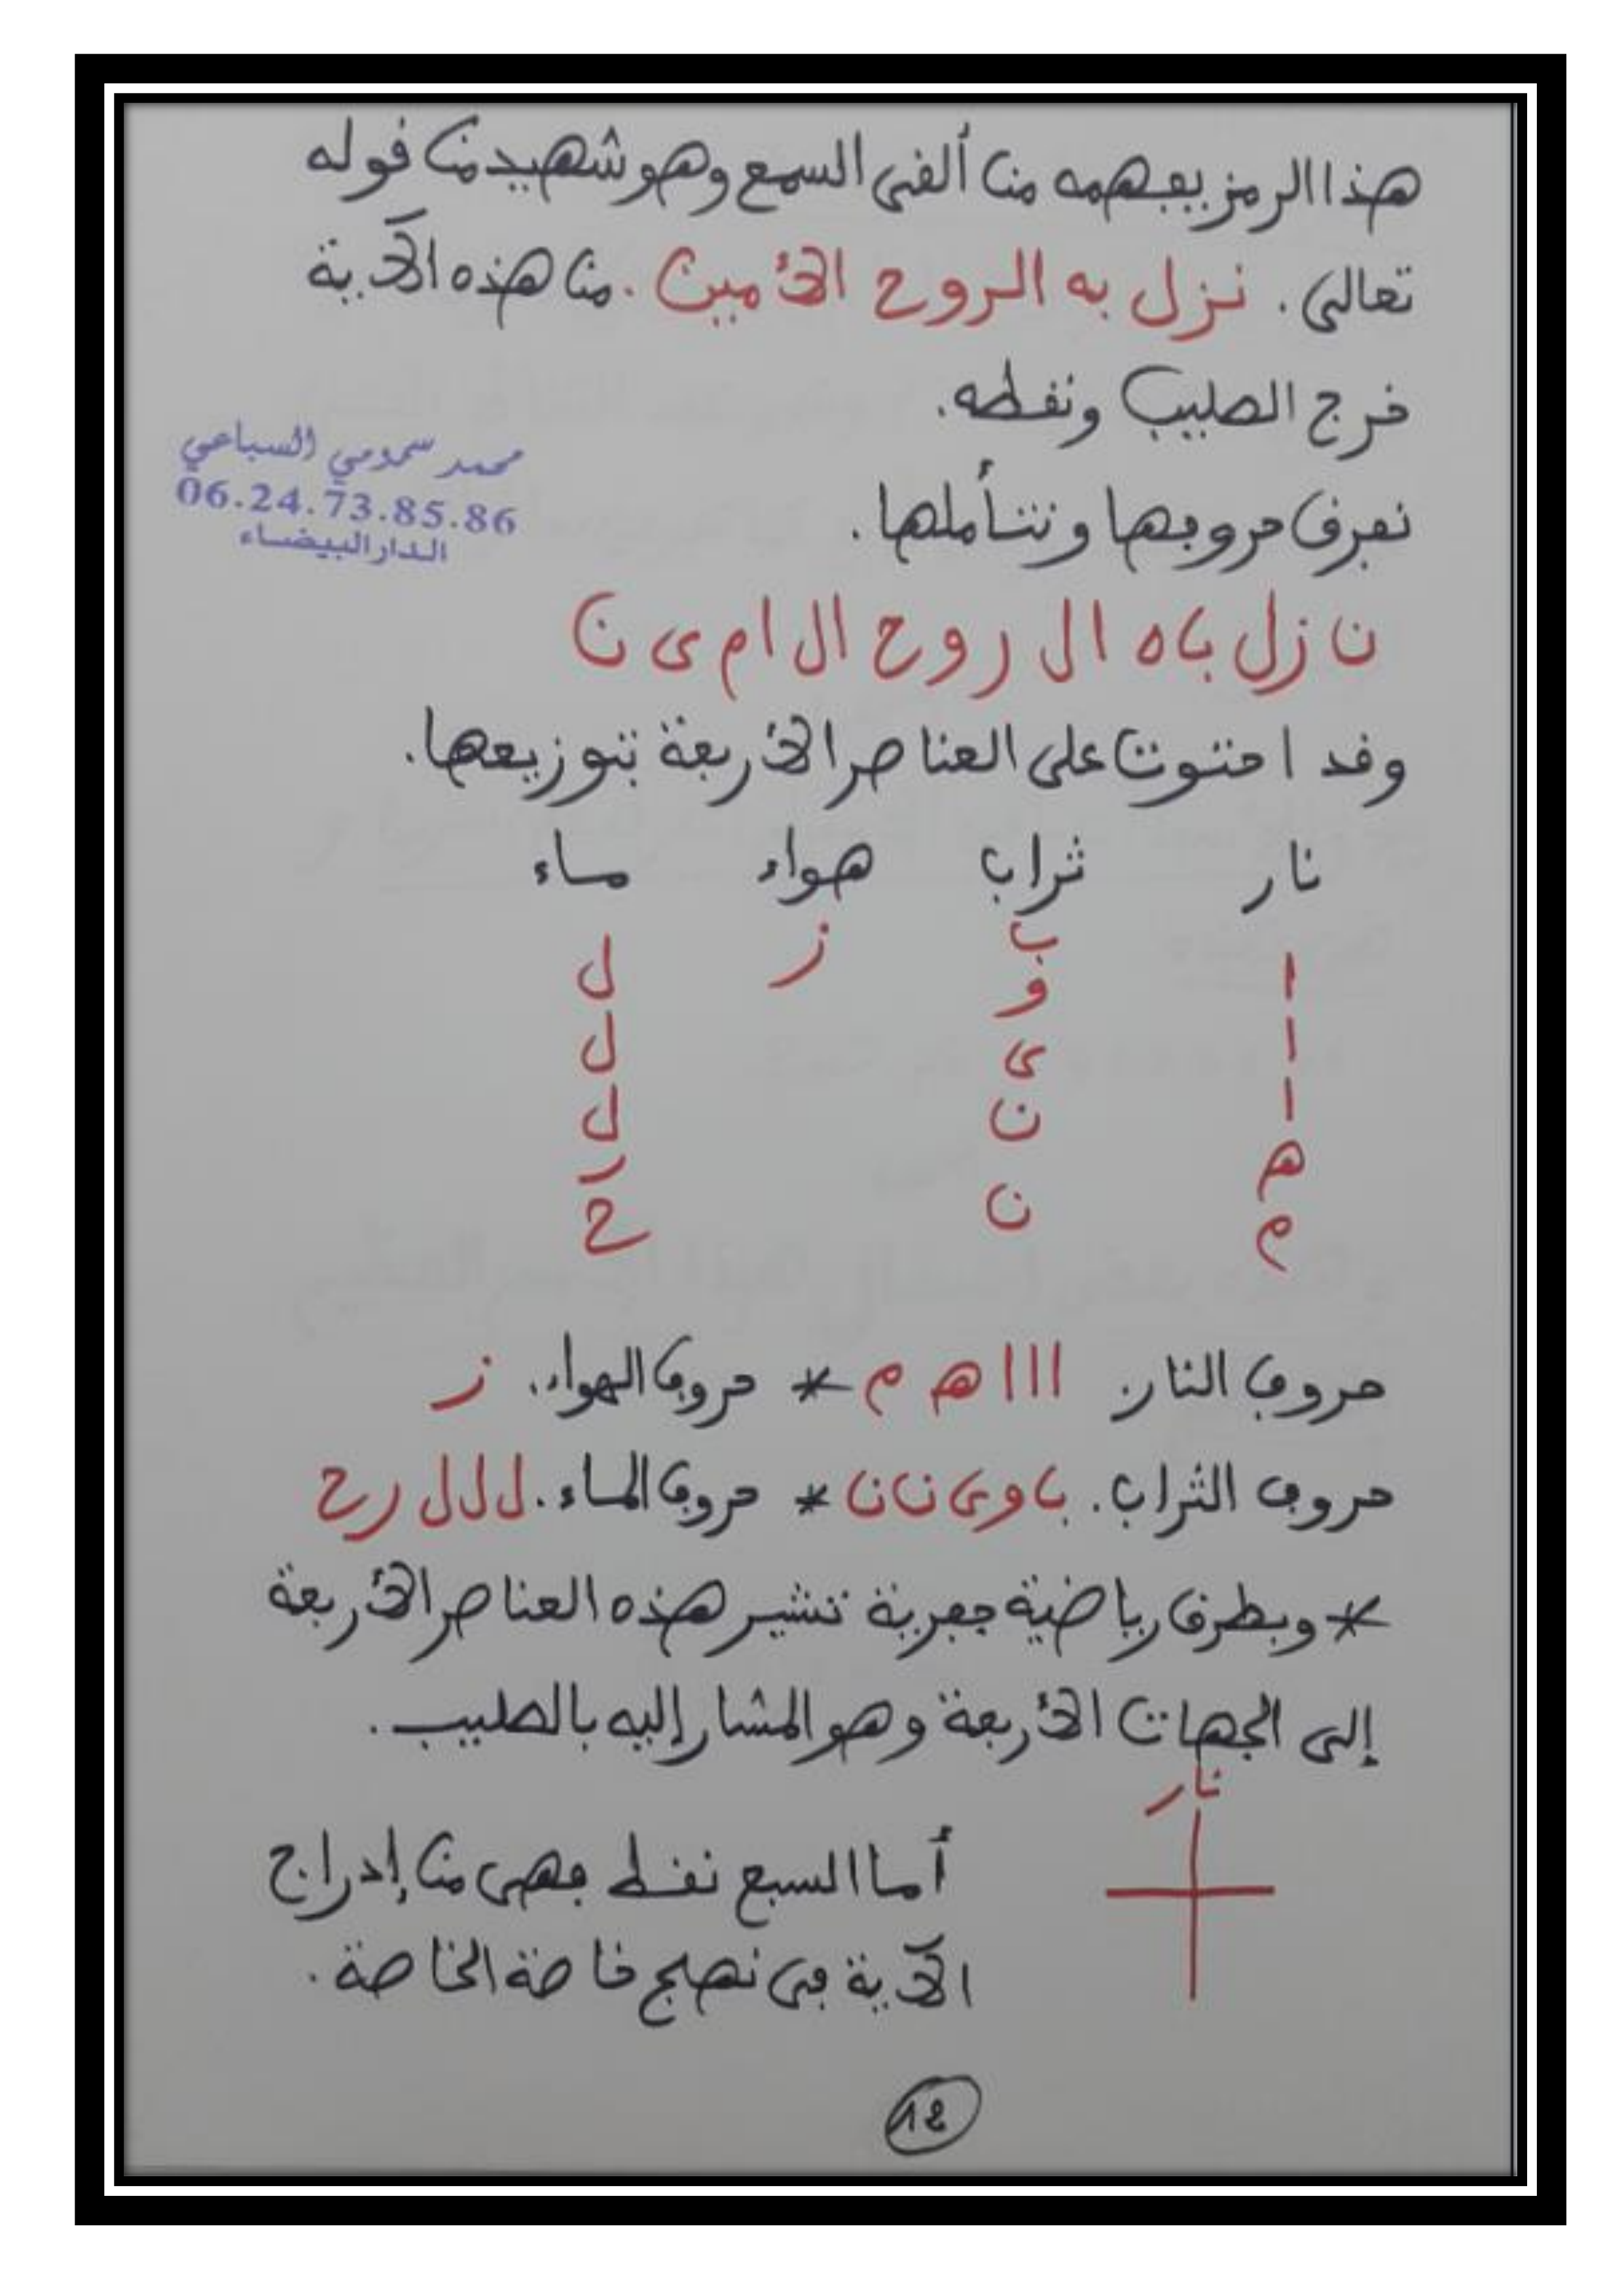 هذا الرمز يفهمه من ألقى السمع وهو شهيد من قوله
تعالى . نزل به الروح الأمين . من هذه الآية
خرج الصليب ونقطه.
نعرف حروفها ونتأملها.
محمد سمومي السباعي
06.24.73.85.86
الدار البيضاء
ن ز ل ب ه ا ل ر و ح ا ل ا م ى ن
وقد احتوت على العناصر الأربعة بتوزيعها.
نار تراب هواء ماء
ا ب ز ل
ا و ل
ا ى ل
ه ن ر
م ن ح
حروف النار. ا ا ا ه م * حروف الهواء. ز
حروف التراب. ب و ى ن ن * حروف الماء. ل ل ل ر ح
* وبطرق رياضية جفرية تشير هذه العناصر الأربعة
إلى الجهات الأربعة وهو المشار إليه بالصليب.
نار
أما السبع نقط فهي من إدراج
الآية في نهج خاصة الخاصة.
12